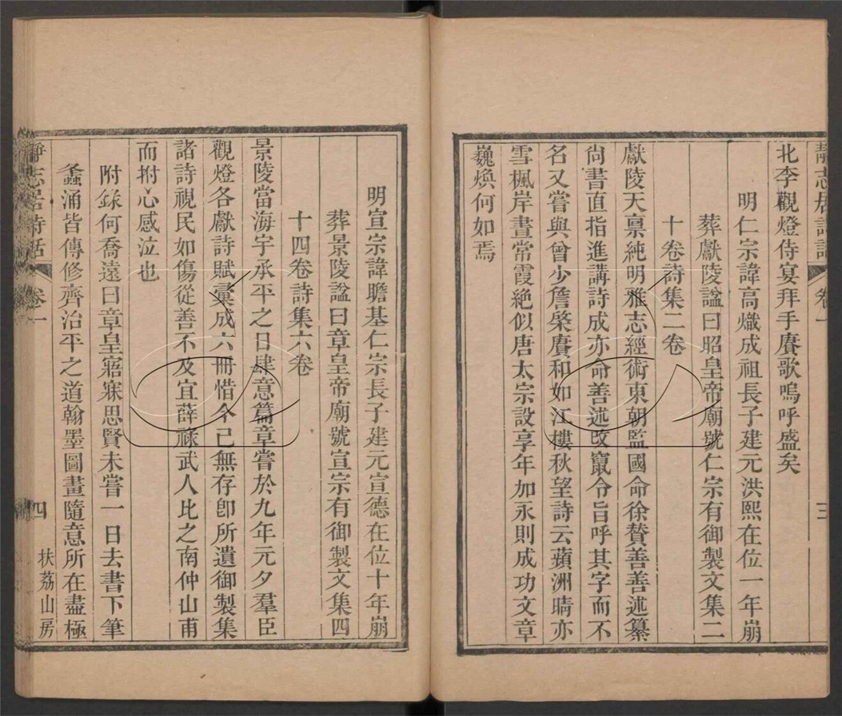 靜志居詩話
卷一
三
北李觀燈侍宴拜手賡歌嗚呼盛矣
明仁宗諱高熾成祖長子建元洪熙在位一年崩
葬獻陵諡曰昭皇帝廟號仁宗有御製文集二
十卷詩集二卷
獻陵天稟純明雅志經術東朝監國命徐贊善善述纂
尚書直指進講詩成亦命善述改竄令旨呼其字而不
名又嘗與曾少詹棨賡和如江樓秋望詩云蘋洲晴亦
雪楓岸晝常霞絶似唐太宗設享年加永則成功文章
巍煥何如焉
明宣宗諱瞻基仁宗長子建元宣德在位十年崩
葬景陵諡曰章皇帝廟號宣宗有御製文集四
十四卷詩集六卷
景陵當海宇承平之日肆意篇章嘗於九年元夕羣臣
觀燈各獻詩賦彙成六冊惜今已無存卽所遺御製集
諸詩視民如傷從善不及宜薛祿武人比之南仲山甫
而拊心感泣也
附錄何喬遠曰章皇寤寐思賢未嘗一日去書下筆
蠭涌皆傳修齊治平之道翰墨圖畫隨意所在盡極
靜志居詩話
卷一
四
扶荔山房